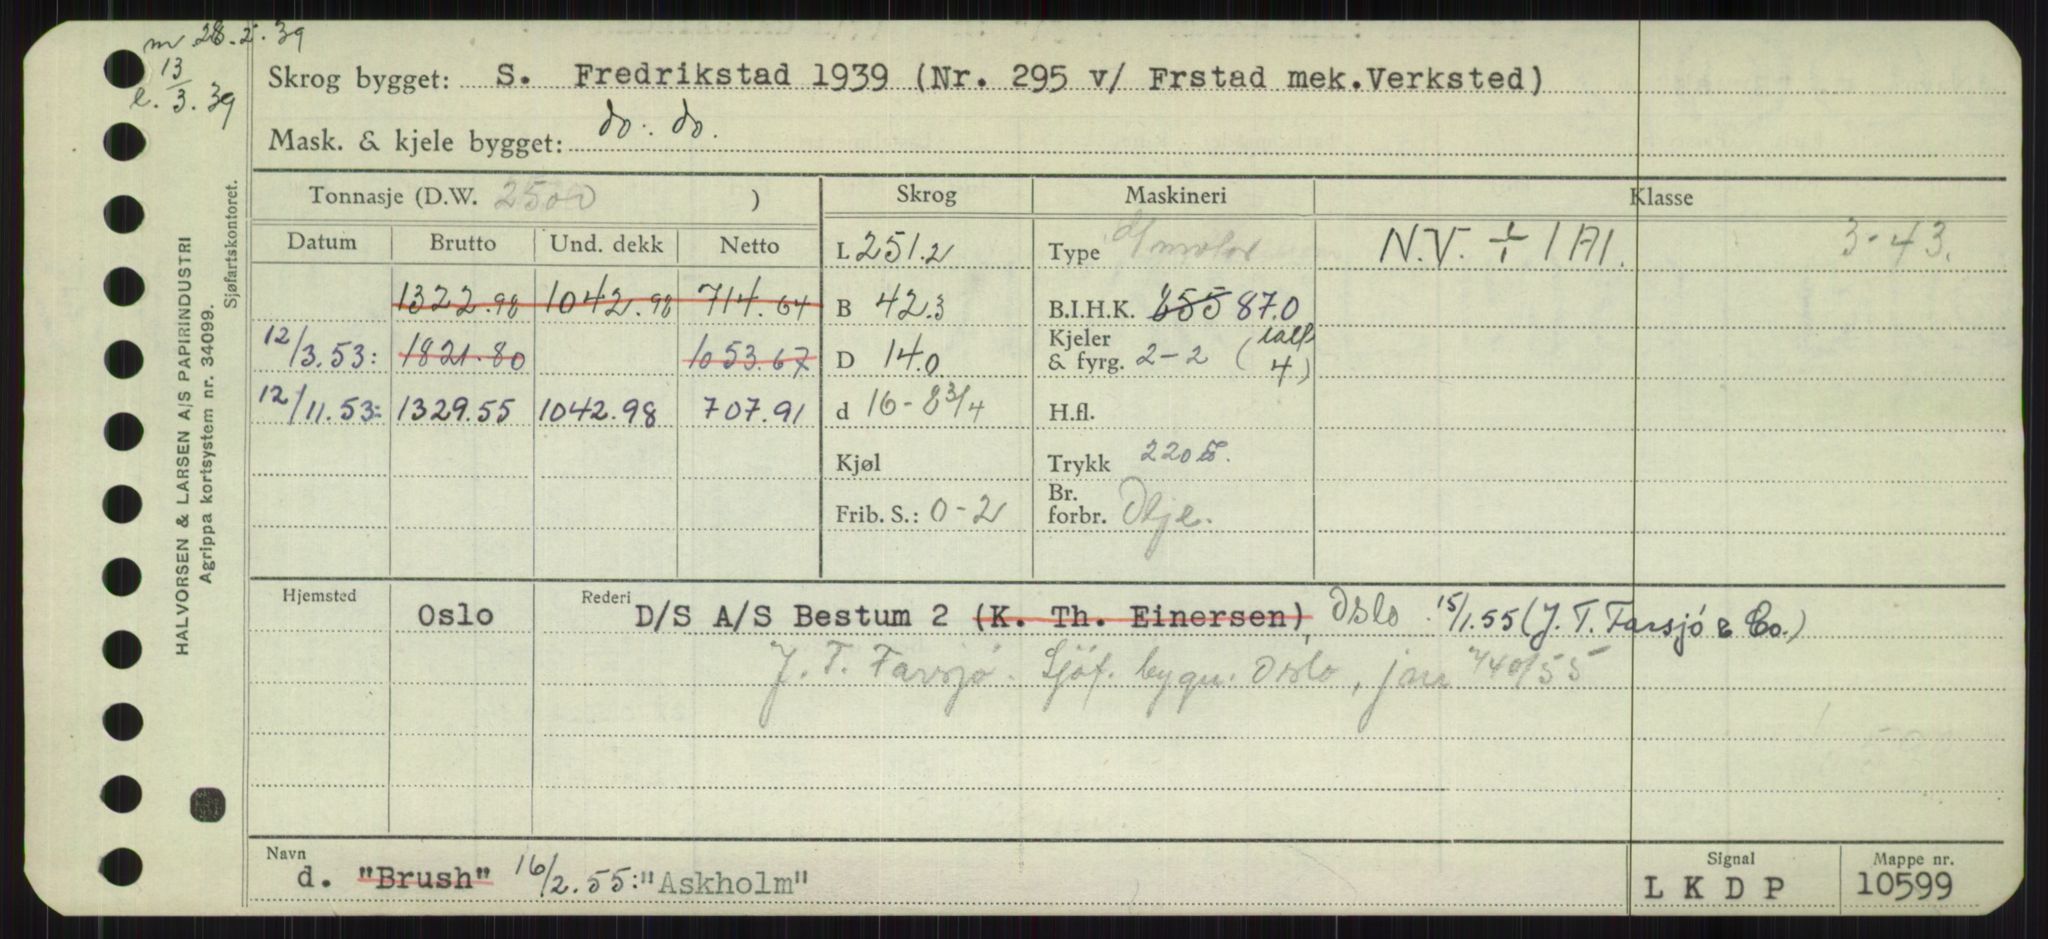 m. 28.2.39
e. 13/3.39
Skrog bygget: S. Fredrikstad 1939 (Nr. 295 v/ Frstad mek.Verksted)
Mask. & kjele bygget: do. do.
Tonnasje (D.W. 2500 )
Skrog
Maskineri
Klasse
Datum Brutto Und. dekk Netto
1322.98 1042.98 714.64
12/3.53: 1821.80 1053.67
12/11.53: 1329.55 1042.98 707.91
L 251.2
B 42.3
D 14.0
d 16-8 3/4
Kjøl
Frib. S.: 0-2
Type
B.I.H.K. 655 870
Kjeler
& fyrg. 2-2 (ialt 4)
H.fl.
Trykk 220
Br.
forbr. Olje.
N.V. ÷ 1A1. 3-43.
Hjemsted
Oslo
Rederi
D/S A/S Bestum 2 (K. Th. Einersen), Oslo 15/1.55 (J. T. Farsjø & Co.)
J. T. Farsjø. Sjøf. bygn. Oslo, jnr 740/55
Navn
d. "Brush" 16/2.55: "Askholm"
Signal
L K D P
Mappe nr.
10599
HALVORSEN & LARSEN A/S PAPIRINDUSTRI
Agrippa kortsystem nr. 34099.
Sjøfartskontoret.